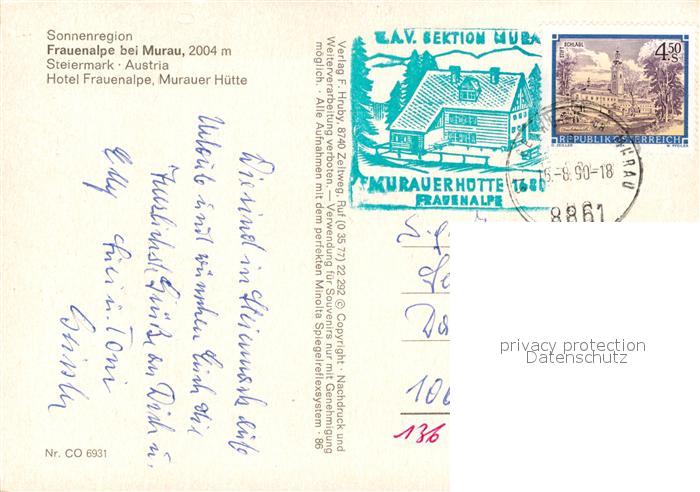 Sonnenregion
Frauenalpe bei Murau, 2004 m
Steiermark · Austria
Hotel Frauenalpe, Murauer Hütte
Verlag F. Hruby, 8740 Zeltweg, Ruf (0 35 77) 22 292 © Copyright · Nachdruck und
Weiterverarbeitung verboten. — Verwendung für Souvenirs nur mit Genehmigung
möglich. · Alle Aufnahmen mit dem perfekten Minolta Spiegelreflexsystem · 86
SEKTION MURA
MURAUERHÜTTE
FRAUENALPE
STIFT SCHLÄGL
4.50
S
REPUBLIK ÖSTERREICH
-8.90-18
8861
Wir sind in Steiermark auf
Urlaub und wünschen Euch die
herzlichste Grüße an Dich u.
u. Toni
Da
136
privacy protection
Datenschutz
Nr. CO 6931